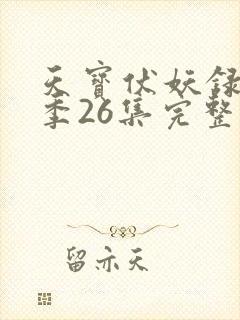 天寳伏妖録
季26集完整
留亦天